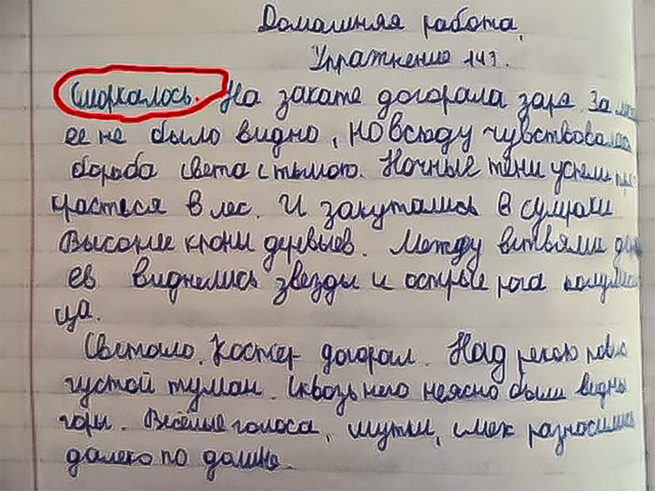 Домашняя работа.
Упражнение 143.
Сморкалось. На закате догорала заря. За
ее не было видно, но всюду чувствовалась
борьба света с тьмою. Ночные тени успели
красться в лес. И закутались в сумраки
высокие крони деревьев. Между витвями
ев виднелись звезды и острые рога полумеся
ца.
Светало. Костер догорал. Над рекою повис
густой туман. Сквозь него неясно были видны
горы. Весёлые голоса, шутки, смех разносились
далеко по долине.